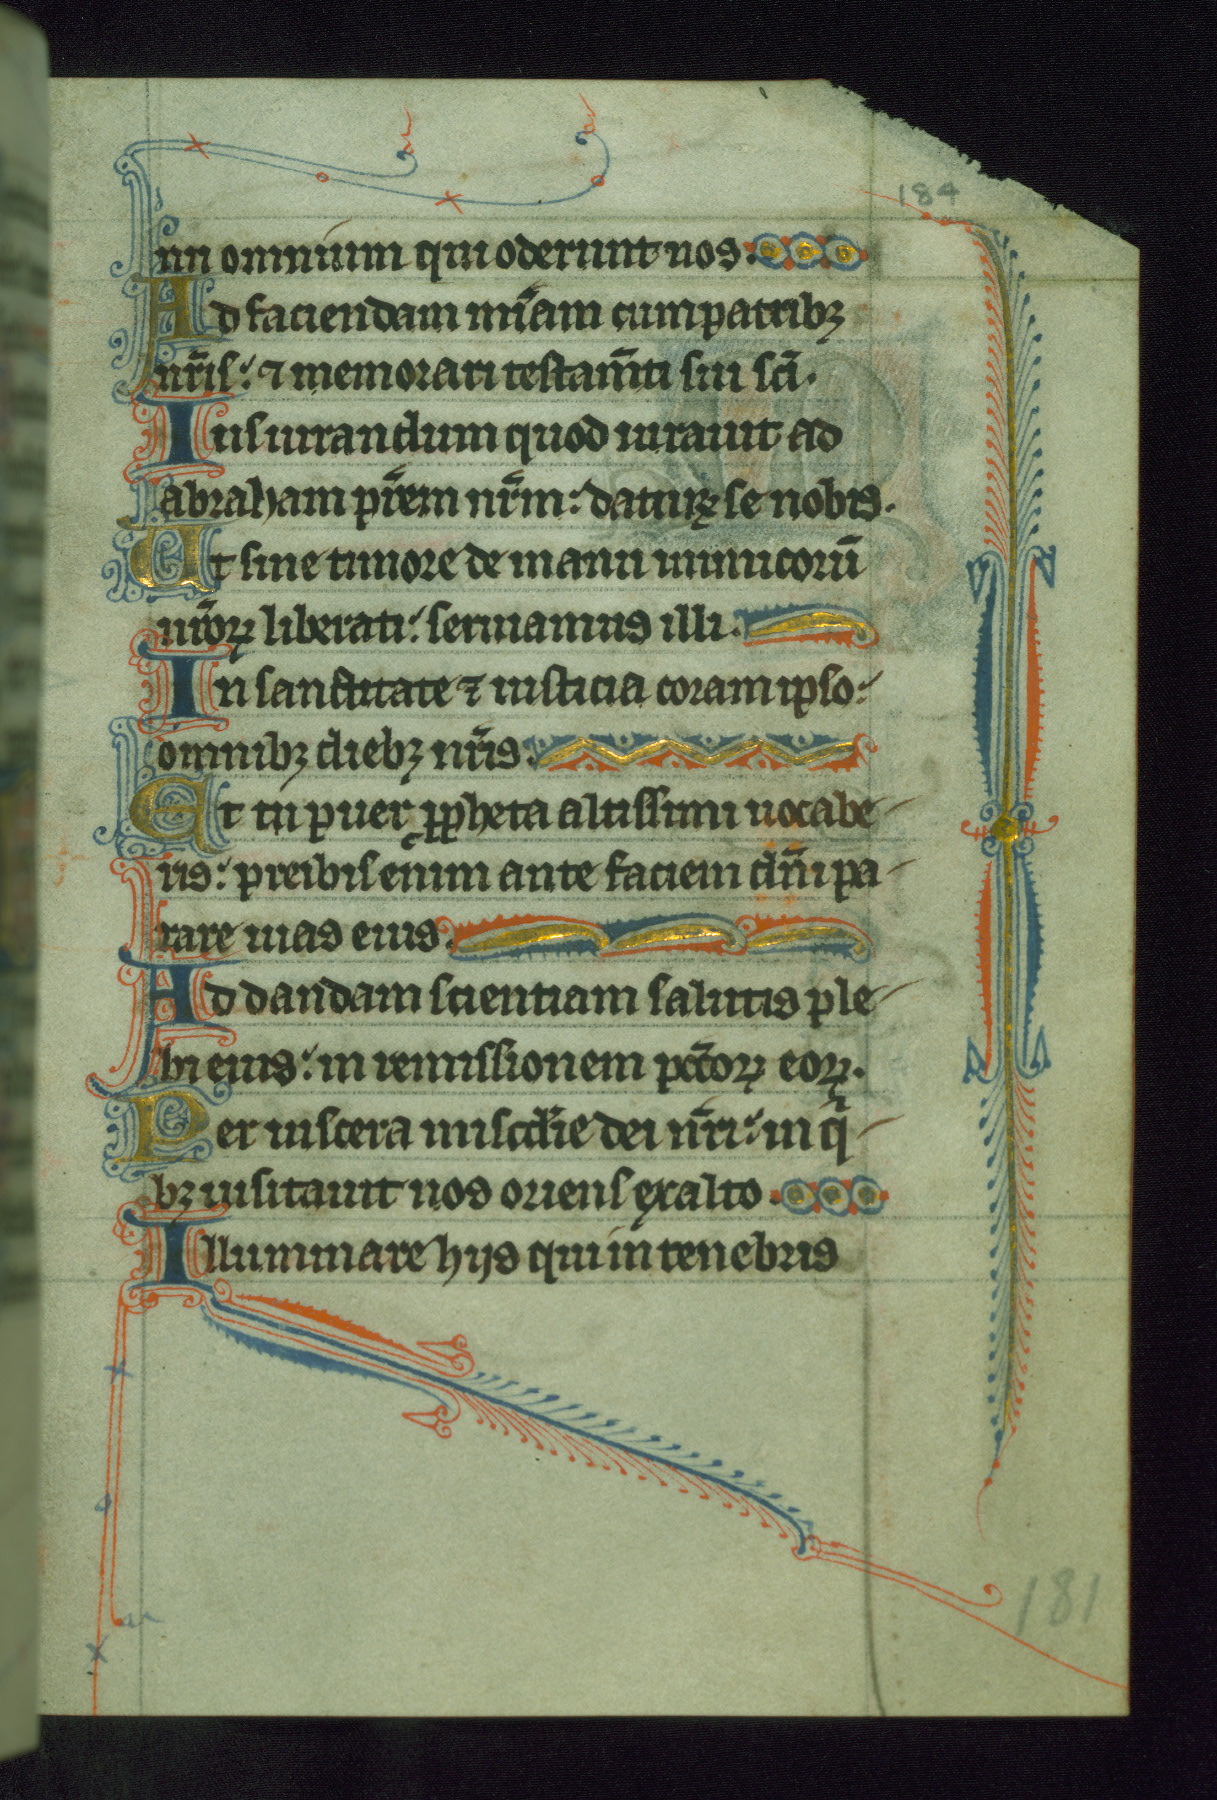 184
nu omnium qui oderunt nos.
Ad faciendam mīam cum patribꝫ
nr̄is: ⁊ memorari testam̄ti sui sc̄i.
Iusiurandum quod iurauit ad
abraham pr̄em nr̄m: daturꝝ se nobis.
Ut sine timore de manu inimicorū
nr̄orꝝ liberati: seruiamus illi.
In sanctitate ⁊ iusticia coram ipso:
omnibꝫ diebꝫ nr̄is.
Et tu puer ꝓpheta altissimi uocabe
ris: preibis enim ante faciem dn̄i pa
rare uias eius.
Ad dandam scientiam salutis ple
bi eius: in remissionem pc̄corꝝ eorꝝ.
Per uiscera mis̄cdie dei nr̄i: in q̄
bꝫ uisitauit nos oriens ex alto.
Illuminare hijs qui in tenebris
181